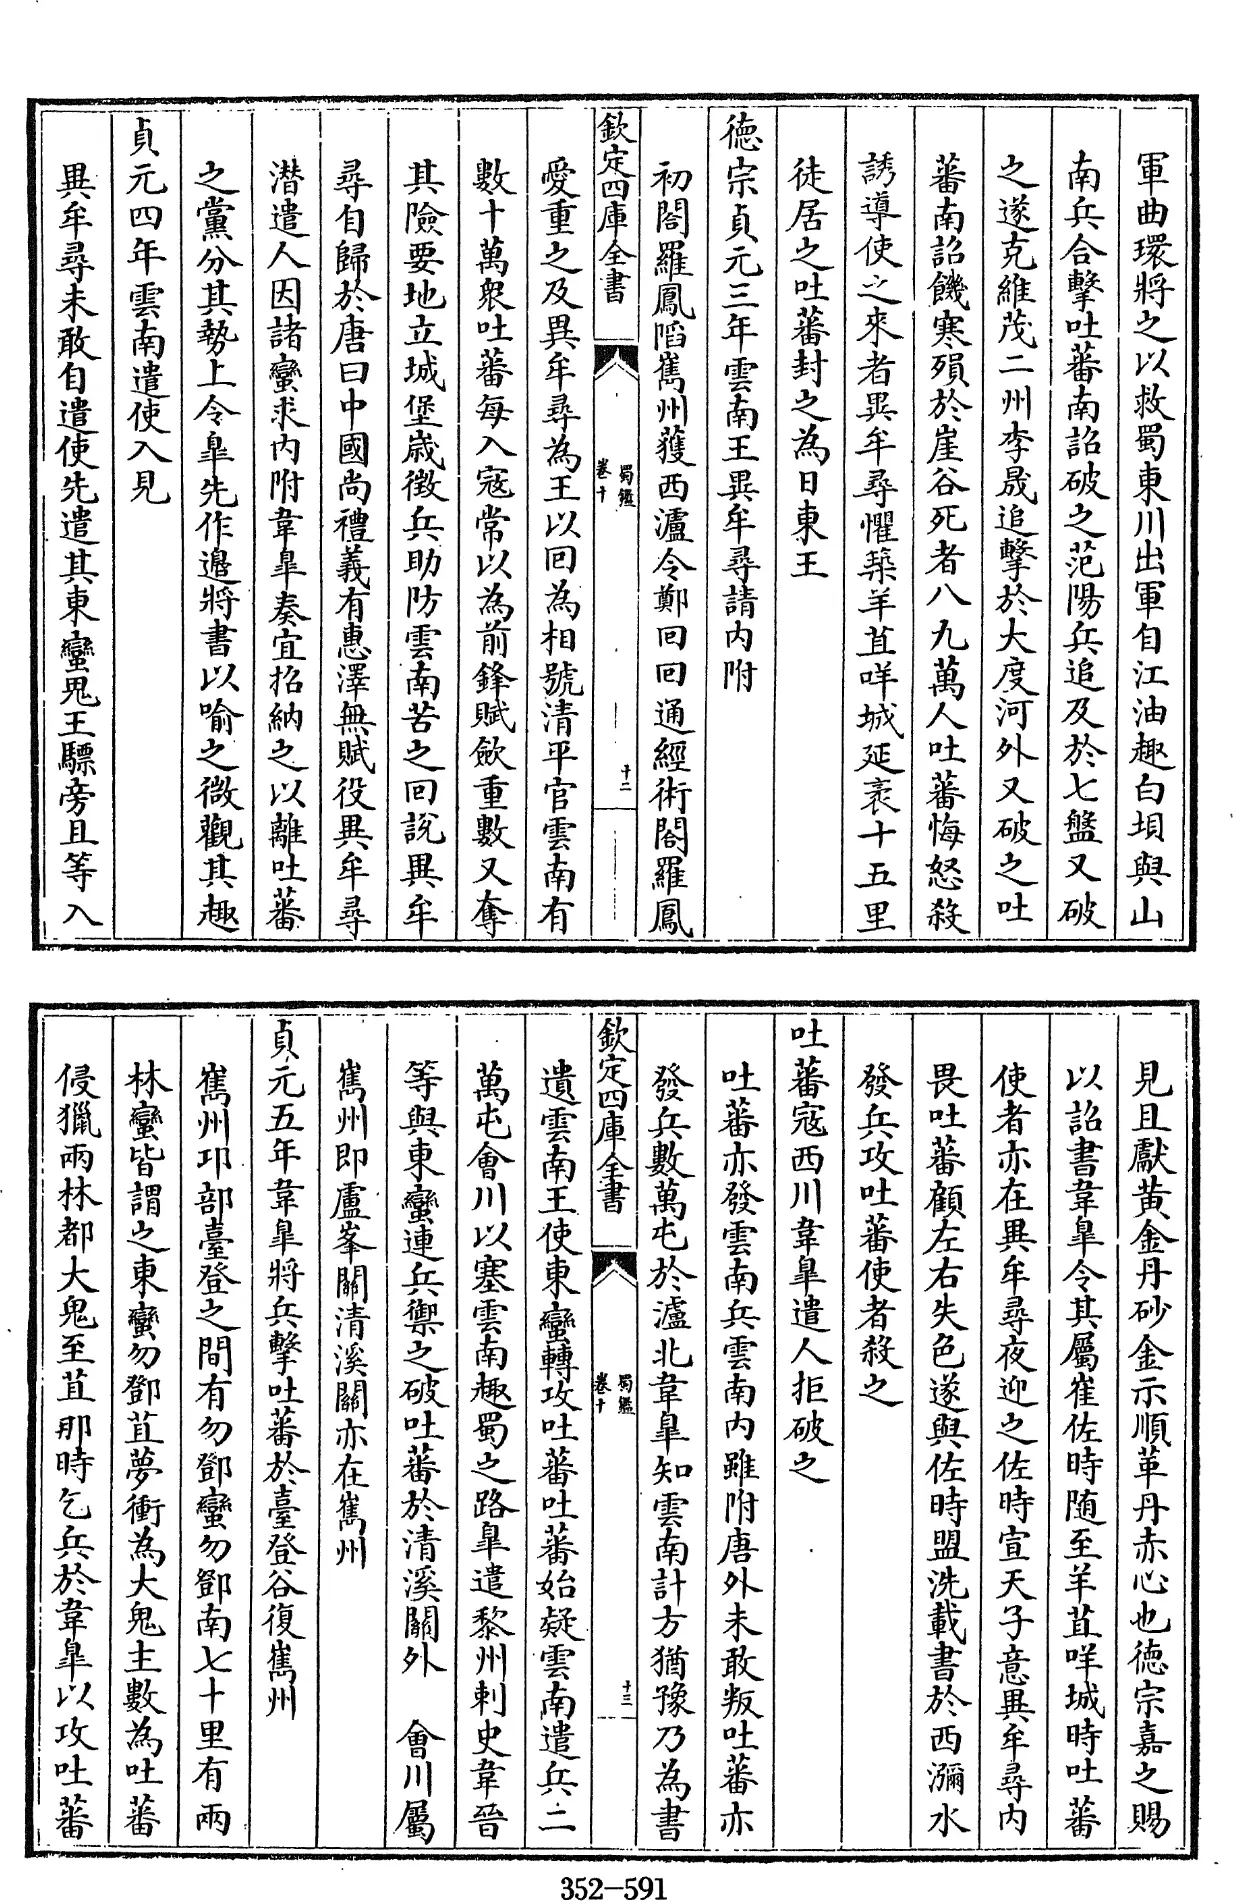 軍曲環將之以救蜀東川出軍自江油趣白垻與山
南兵合擊吐蕃南詔破之范陽兵追及於七盤又破
之遂克維茂二州李晟追擊於大度河外又破之吐
蕃南詔饑寒殞於崖谷死者八九萬人吐蕃悔怒殺
誘導使之來者異牟尋懼築羊苴咩城延袤十五里
徙居之吐蕃封之為日東王
德宗貞元三年雲南王異牟尋請內附
初閤羅鳳陷雟州獲西瀘令鄭回回通經術閤羅鳳
欽定四庫全書
蜀鑑
卷十
十二
愛重之及異牟尋為王以回為相號清平官雲南有
數十萬衆吐蕃每入寇常以為前鋒賦斂重數又奪
其險要地立城堡歲徵兵助防雲南苦之回說異牟
尋自歸於唐曰中國尚禮義有惠澤無賦役異牟尋
潛遣人因諸蠻求內附韋臯奏宜招納之以離吐蕃
之黨分其勢上令臯先作邊將書以喻之微觀其趣
貞元四年雲南遣使入見
異牟尋未敢自遣使先遣其東蠻鬼王驃旁且等入
見且獻黃金丹砂金示順革丹赤心也德宗嘉之賜
以詔書韋臯令其屬崔佐時随至羊苴咩城時吐蕃
使者亦在異牟尋夜迎之佐時宣天子意異牟尋內
畏吐蕃顧左右失色遂與佐時盟洗載書於西瀰水
發兵攻吐蕃使者殺之
吐蕃寇西川韋臯遣人拒破之
吐蕃亦發雲南兵雲南內雖附唐外未敢叛吐蕃亦
發兵數萬屯於瀘北韋臯知雲南計方猶豫乃為書
欽定四庫全書
蜀鑑
卷十
十三
遺雲南王使東蠻轉攻吐蕃吐蕃始疑雲南遣兵二
萬屯會川以塞雲南趣蜀之路臯遣黎州刺史韋晉
等與東蠻連兵禦之破吐蕃於清溪關外　會川屬
雟州即盧峯關清溪關亦在雟州
貞元五年韋臯將兵擊吐蕃於臺登谷復雟州
雟州邛部臺登之間有勿鄧蠻勿鄧南七十里有兩
林蠻皆謂之東蠻勿鄧苴夢衝為大鬼主數為吐蕃
侵獵兩林都大鬼至苴那時乞兵於韋臯以攻吐蕃
352-591